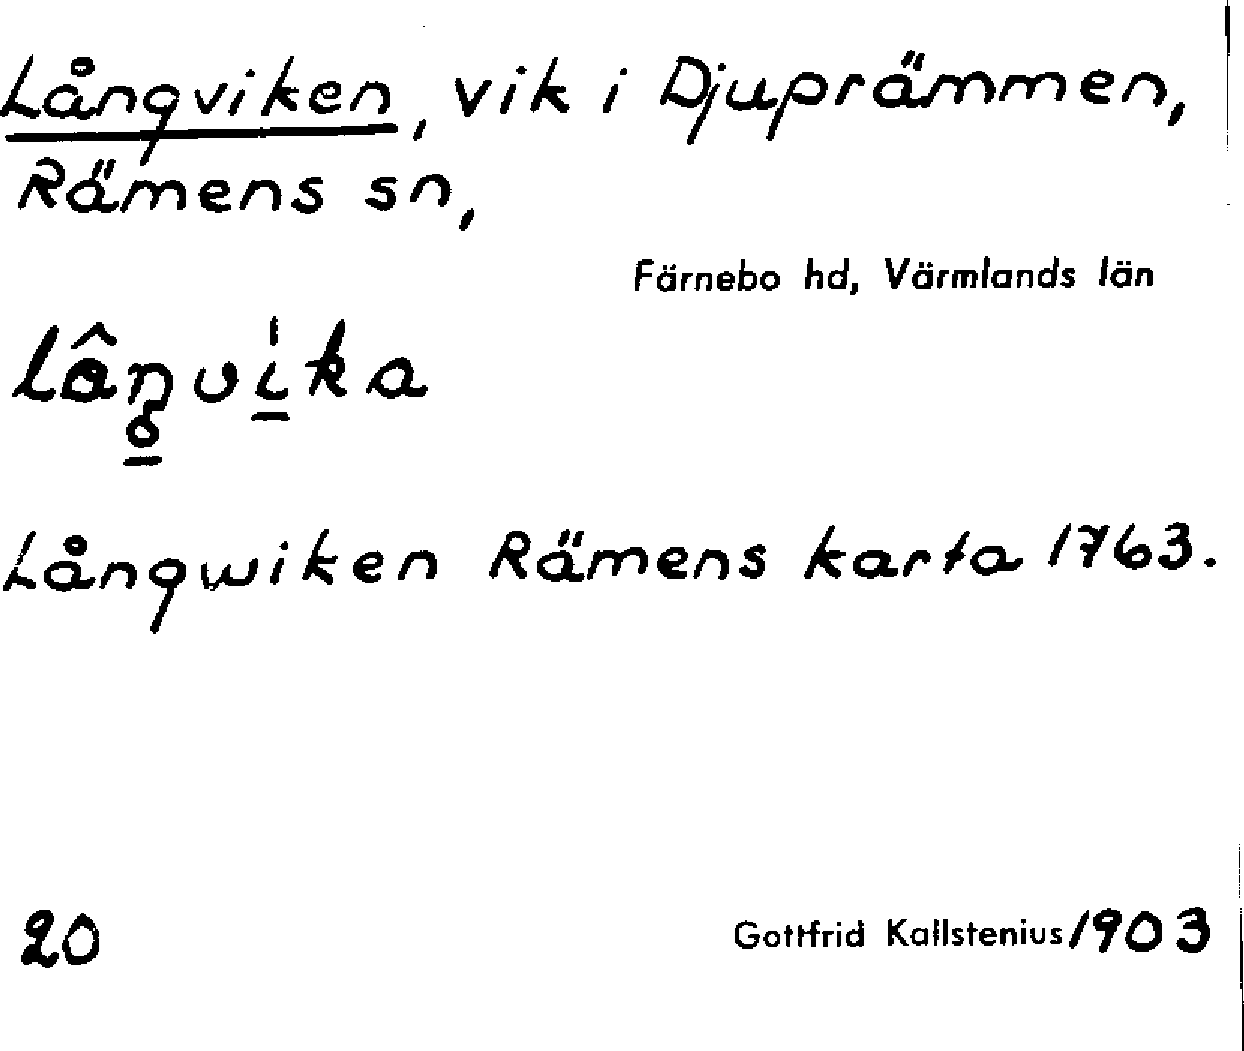 Långviken, vik i Djuprämmen,
Rämens sn,
Färnebo hd, Värmlands län
Långwiken Rämens karta 1763.
20 Gottfrid Kallstenius 1903